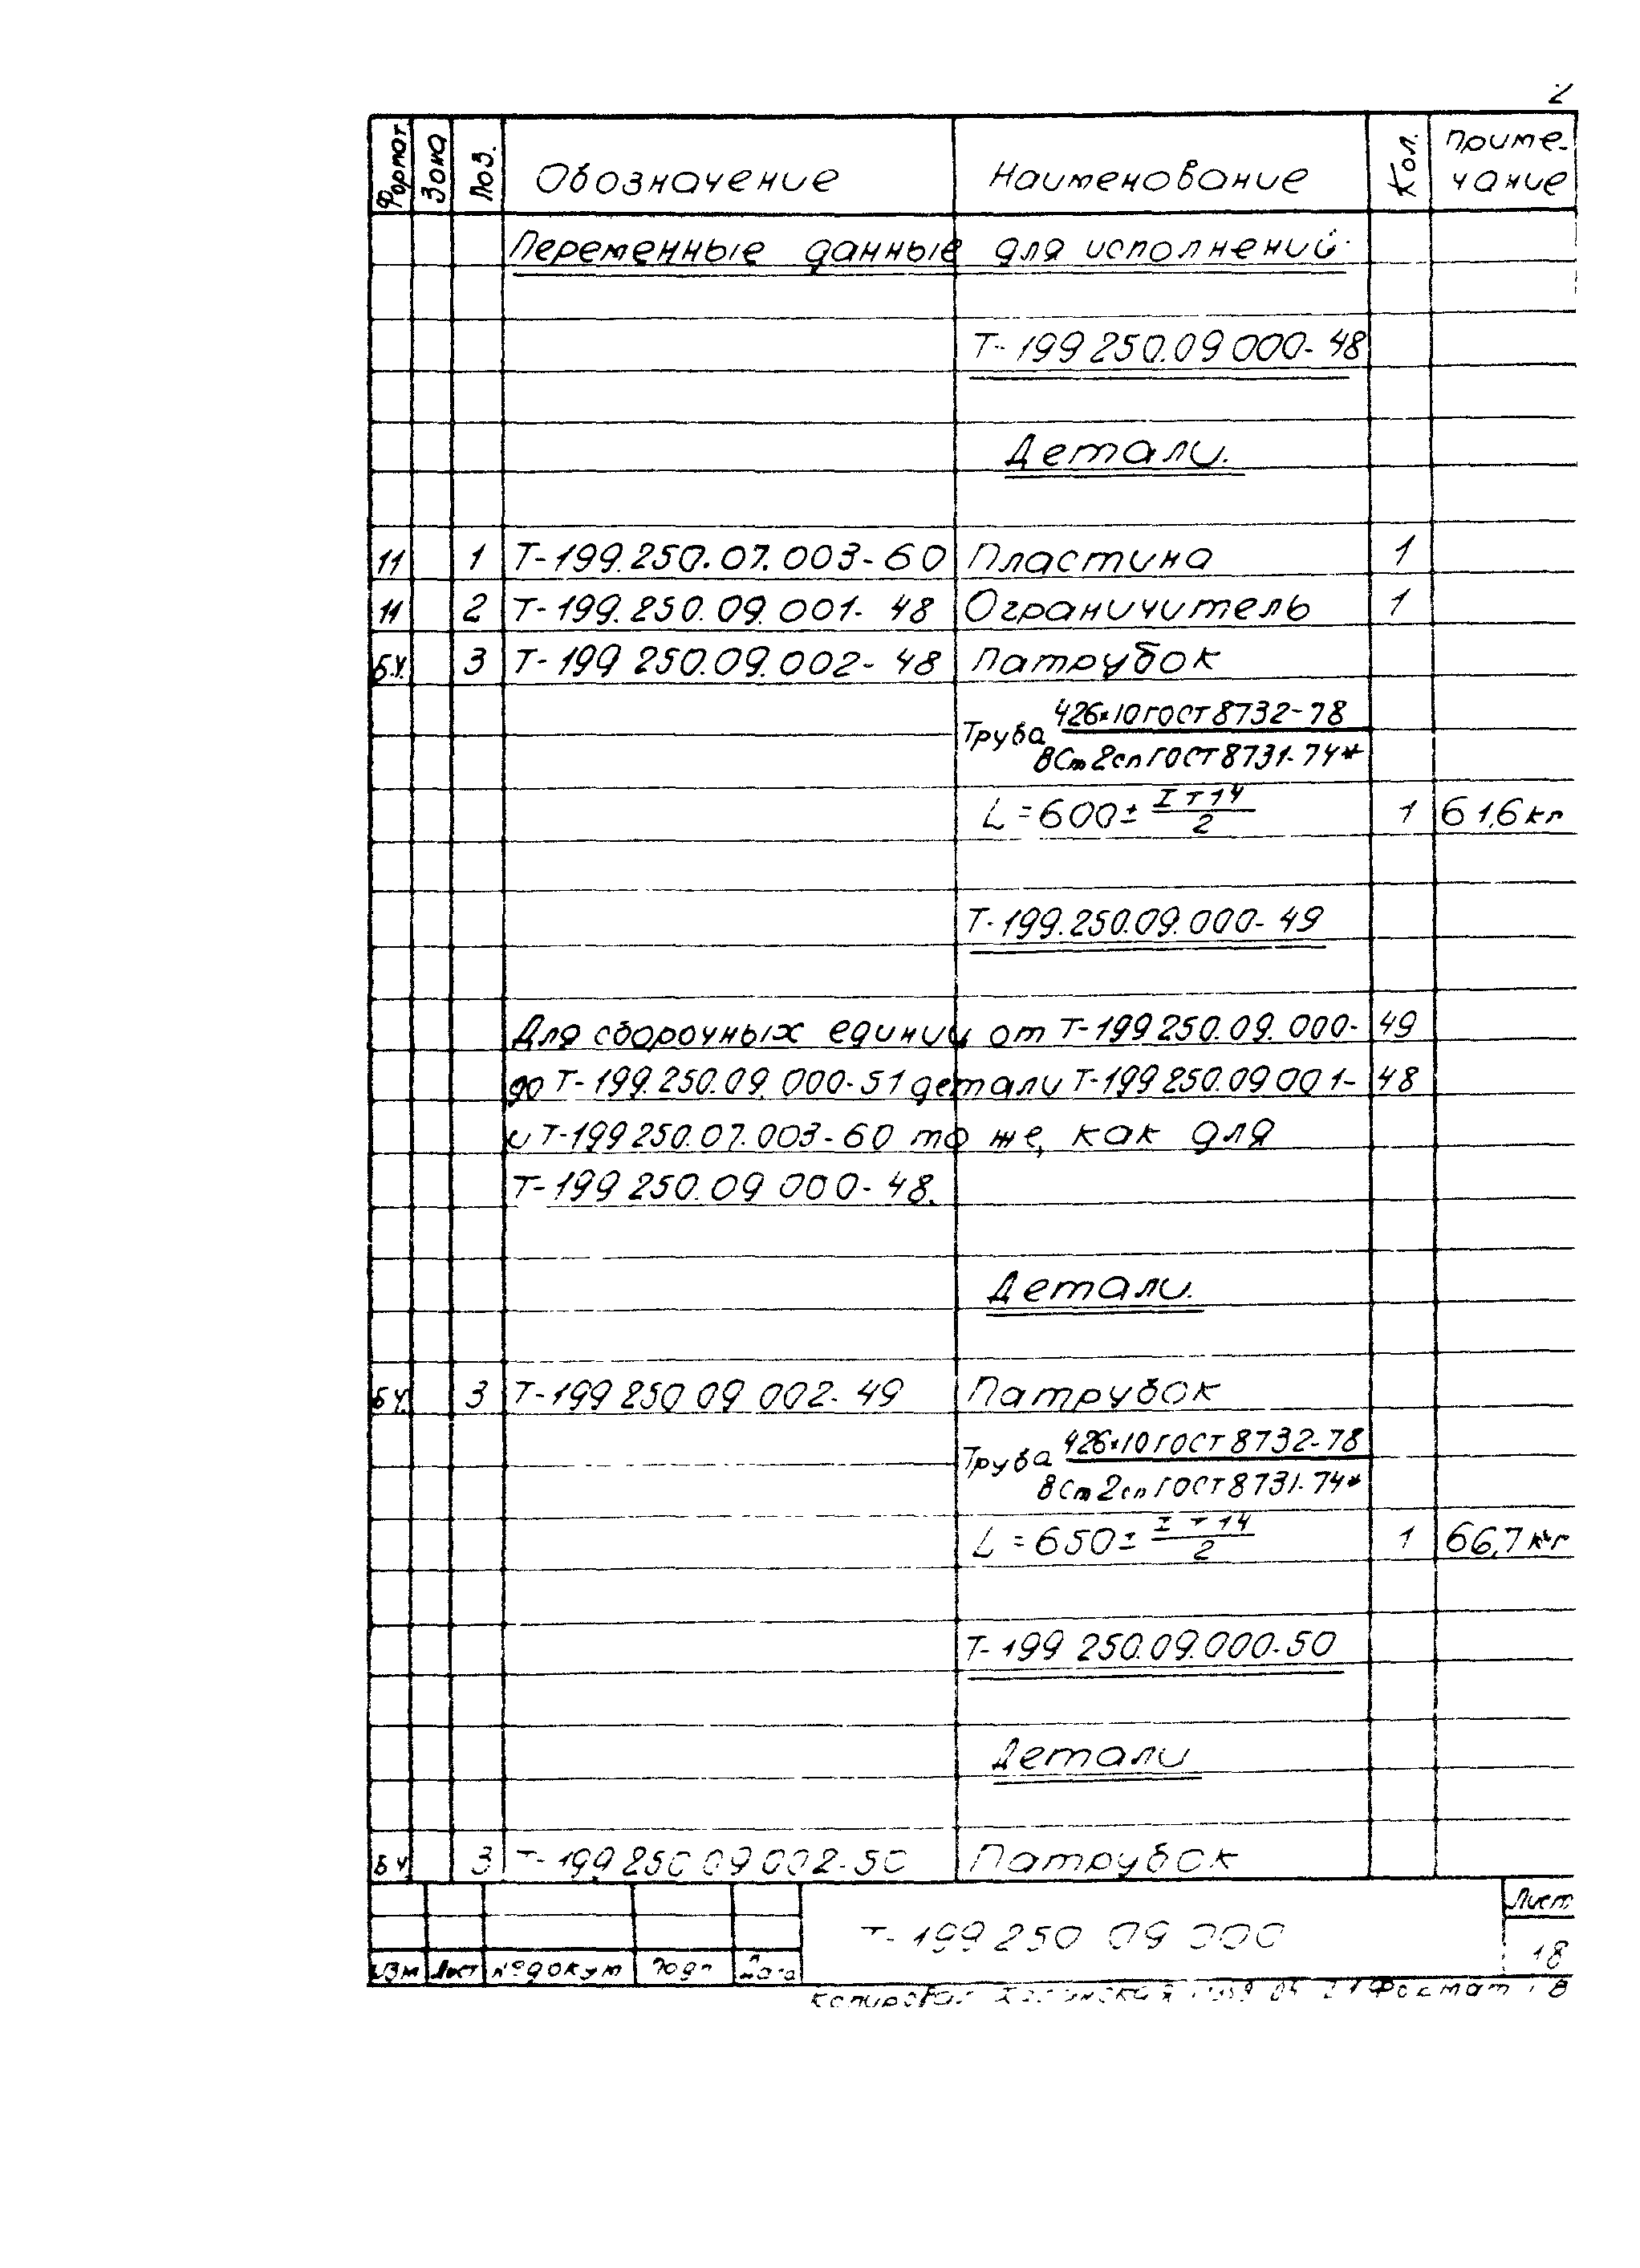 2
Формат Зона Поз. Обозначение Наименование Кол. Приме-
чание
Переменные данные для исполнений:
Т-199 250.09 000-48
Детали.
11 1 Т-199.250.07.003-60 Пластина 1
11 2 Т-199.250.09.001-48 Ограничитель 1
Б.Ч. 3 Т-199 250.09.002-48 Патрубок
Труба 426×10 ГОСТ 8732-78
ВСт2сп ГОСТ 8731-74*
L=600± IT14/2 1 61,6 кг
Т-199.250.09.000-49
Для сборочных единиц от Т-199 250.09.000-49
до Т-199.250.09.000-51 детали Т-199 250.09 001-48
и Т-199 250.07.003-60 то же, как для
Т-199 250.09 000-48.
Детали.
БЧ. 3 Т-199 250 09 002-49 Патрубок
Труба 426×10 ГОСТ 8732-78
ВСт2сп ГОСТ 8731-74*
L=650± IT14/2 1 66,7 кг
Т-199 250.09.000-50
Детали
БЧ 3 Т-199 250 09 002-50 Патрубок
Лист
Т-199 250 09 000
18
Изм Лист № докум Подп Дата
Копировал Формат